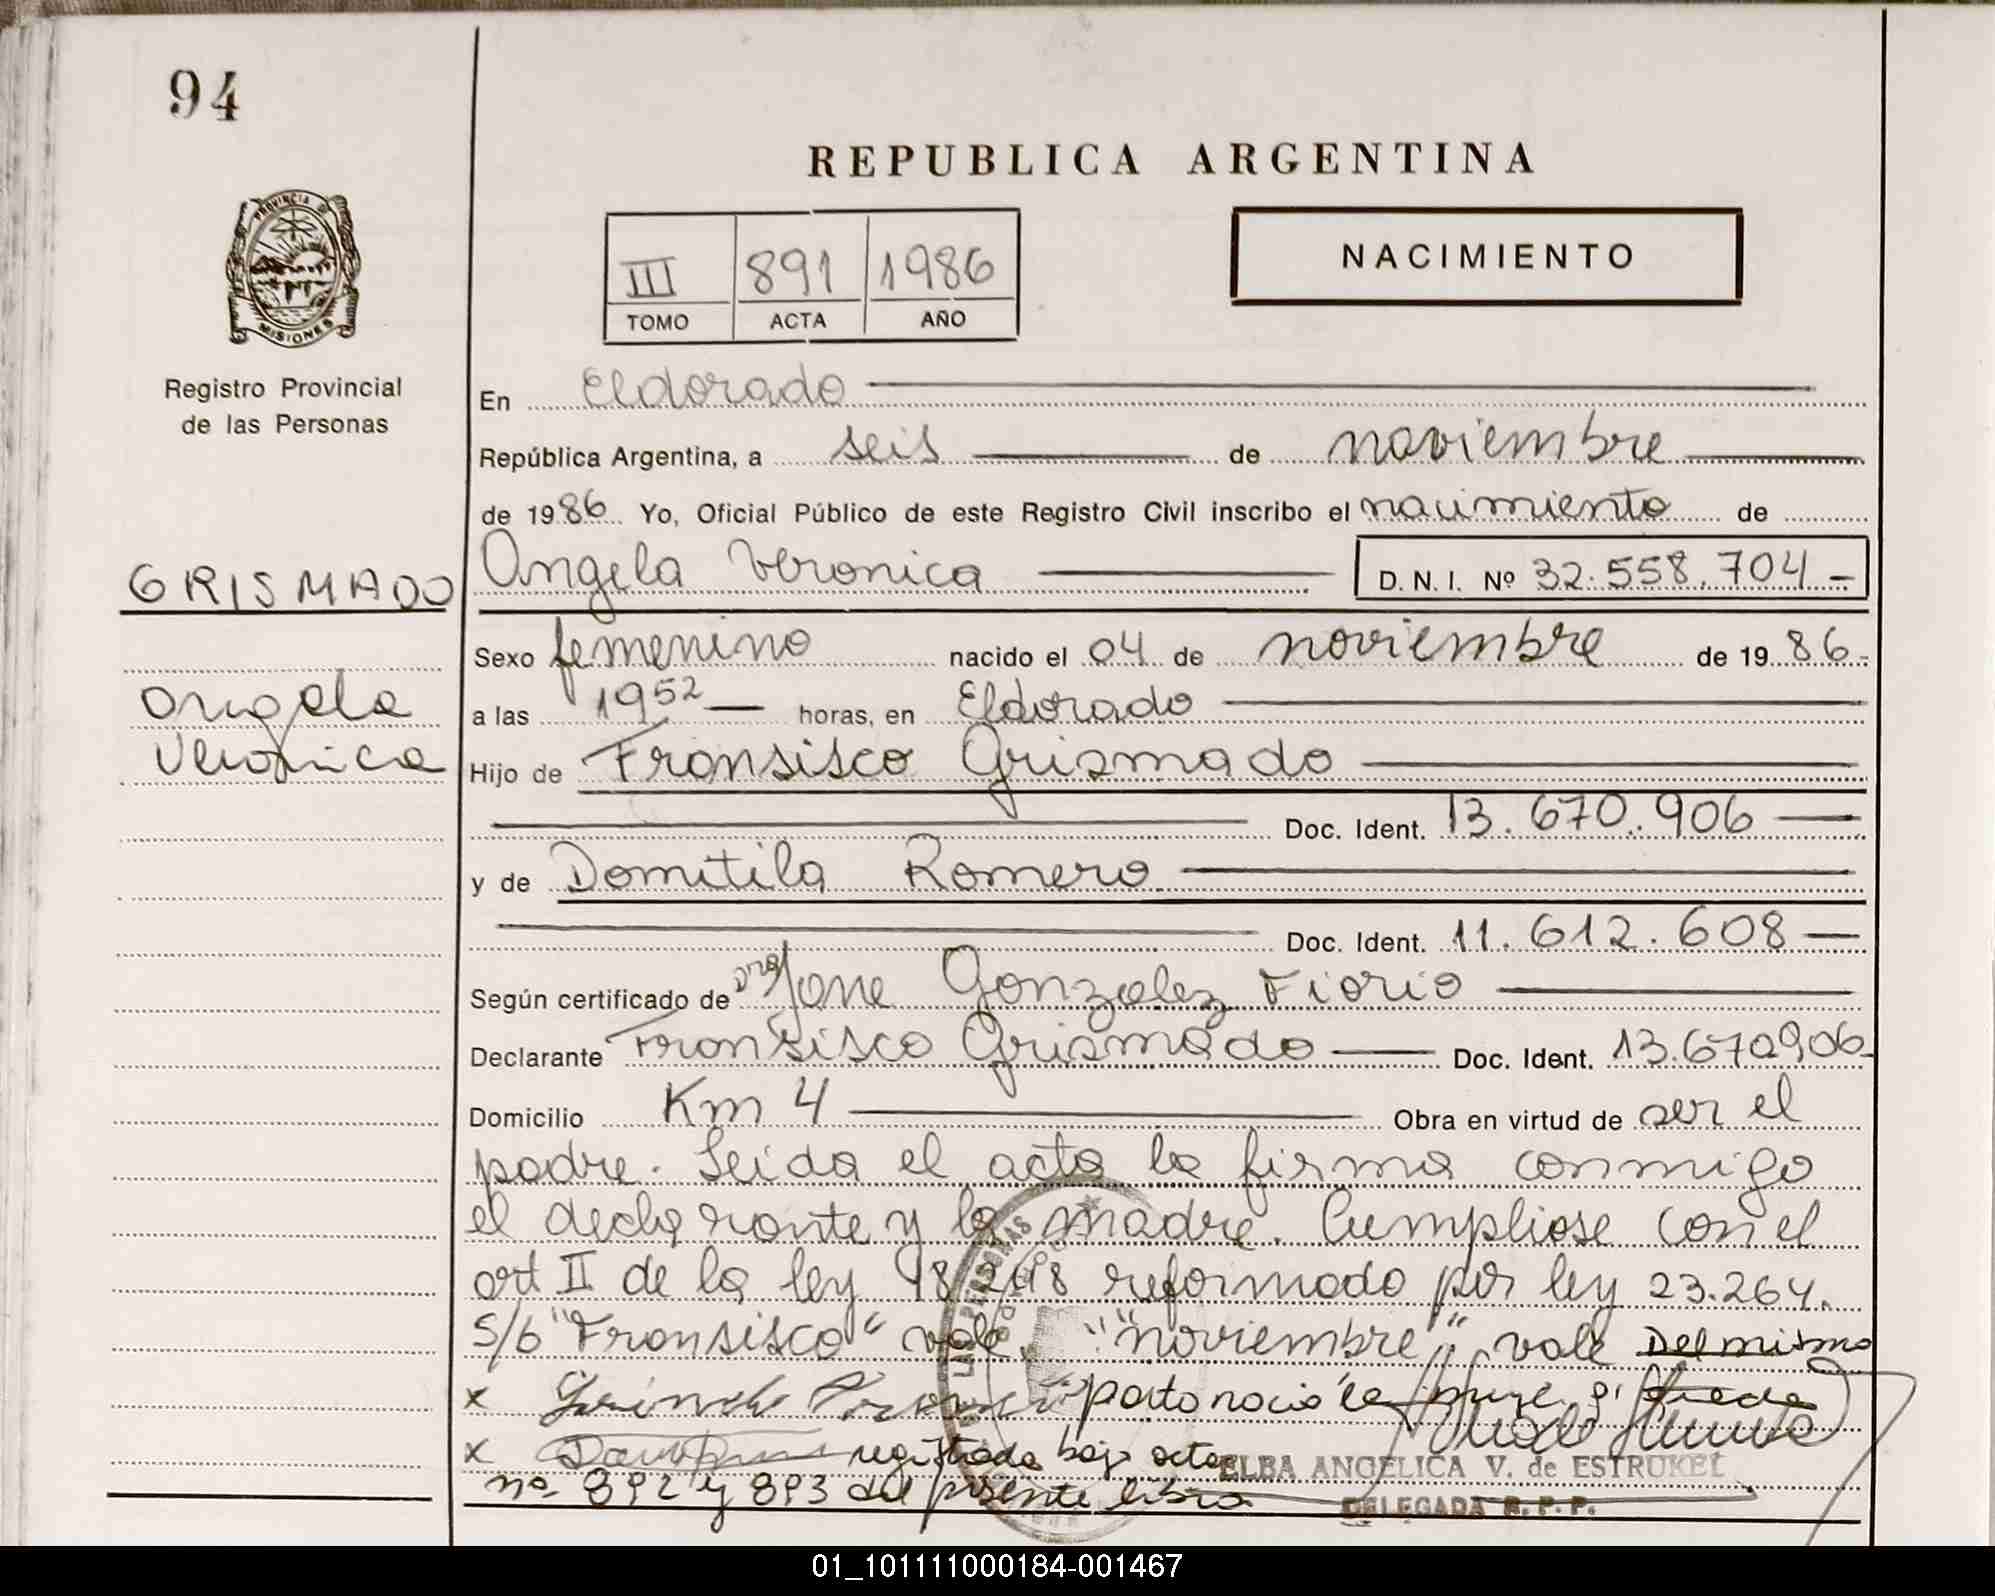 94
REPUBLICA ARGENTINA
PROVINCIA D
MISIONES
Registro Provincial
de las Personas
III 891 1986
TOMO ACTA AÑO
NACIMIENTO
En Eldorado
República Argentina, a seis de noviembre
de 1986 Yo, Oficial Público de este Registro Civil inscribo el nacimiento de
GRISMADO
Angela Veronica D. N. I. Nº 32.558.704
Sexo femenino nacido el 04 de noviembre de 1986
Angela
a las 1952 horas, en Eldorado
Veronica
Hijo de Fransisco Grismado
Doc. Ident. 13.670.906
y de Domitila Romero
Doc. Ident. 11.612.608
Según certificado de Dra Jane Gonzalez Fiorio
Declarante Fransisco Grismado Doc. Ident. 13.670906
Domicilio Km 4 Obra en virtud de ser el
padre. Leida el acta la firma conmigo
el declarante y la madre. Cumpliose con el
art II de la ley 18248 reformado por ley 23.264.
S/b "Fransisco" vale "noviembre" vale Del mismo
x parto nacio
x registrada bajo acta
ELBA ANGELICA V. de ESTRUKEL
nº 892 y 893 del presente libro
DELEGADA R. P. P.
01_101111000184-001467